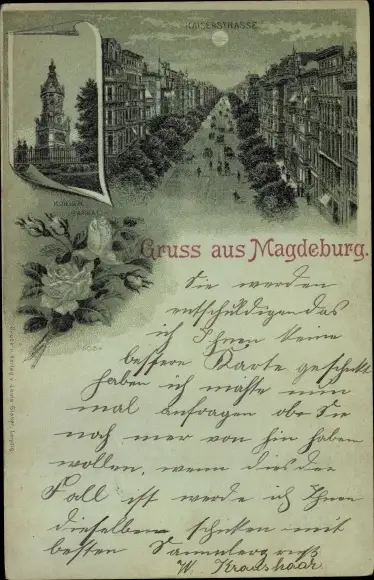 KAISERSTRASSE
Gruss aus Magdeburg.
Sie werden
entschuldigen das
ich Ihnen keine
bessere Karte geschikt
haben ich möhte nun
mal anfragen ob Sie
noch mer von hin haben
wollen, wenn dies der
Fall ist werde ich Ihnen
dieselben schiken mit
besten Sammlergruß
W. Kraushaar